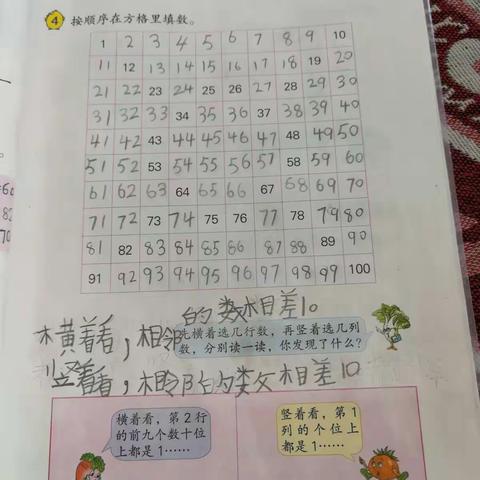 4 按顺序在方格里填数。
1 2 3 4 5 6 7 8 9 10
11 12 13 14 15 16 17 18 19 20
21 22 23 24 25 26 27 28 29 30
31 32 33 34 35 36 37 38 39 40
41 42 43 44 45 46 47 48 49 50
51 52 53 54 55 56 57 58 59 60
61 62 63 64 65 66 67 68 69 70
71 72 73 74 75 76 77 78 79 80
81 82 83 84 85 86 87 88 89 90
91 92 93 94 95 96 97 98 99 100
的数相差1。
横着看，相邻
先横着选几行数，再竖着选几列
数，分别读一读，你发现了什么？
竖着看，相邻的数相差10
横着看，第2行
的前九个数十位
上都是1……
竖着看，第1
列的个位上
都是1……